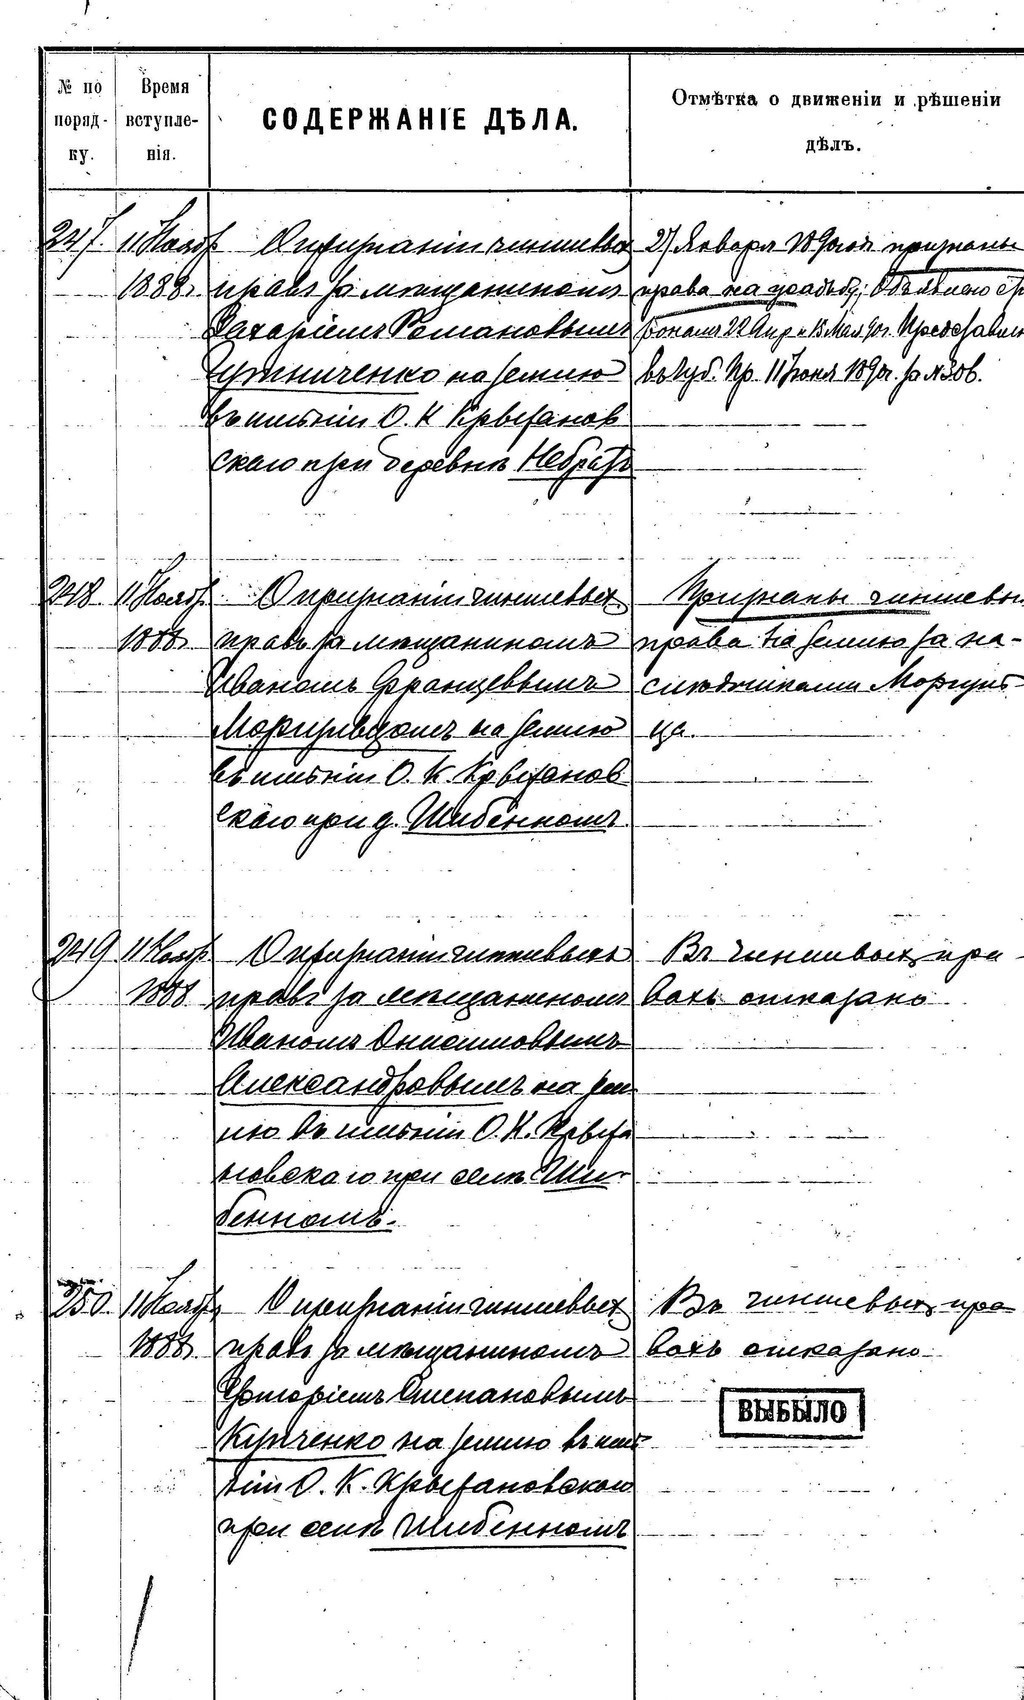 № по порядку.
Время вступленія.
СОДЕРЖАНІЕ ДѢЛА.
Отмѣтка о движеніи и рѣшеніи дѣлъ.
247. 11 Ноябр. 1888
О признаніи чиншевыхъ
правъ за мѣщаниномъ
Захаріемъ Романовымъ
на землю
въ имѣніи О. К. Крыжанов
скаго при деревнѣ Небратъ
27 Января 1890 г. признаны
права на усадьбу; Объявлено
22 Апр и 15 Мая 90 г.
въ Губ. Пр. 11 Іюня 1890 г. за №306.
248 11 Ноябр. 1888
О признаніи чиншевыхъ
правъ за мѣщаниномъ
Иваномъ Францевымъ
на землю
въ имѣніи О. К. Крыжанов
скаго при д. Шибенномъ.
Признаны чиншевы
права на землю за на-
слѣдниками
ца.
249 11 Ноябр. 1888
О признаніи чиншевыхъ
правъ за мѣщаниномъ
Иваномъ Онисимовымъ
Александровымъ на зем
лю въ имѣніи О. К. Крыжа
новскаго при селѣ Ши-
бенномъ.
Въ чиншевыхъ пра-
вахъ отказано
250. 11 Ноябр. 1888
О признаніи чиншевыхъ
правъ за мѣщаниномъ
Григоріемъ Степановымъ
Купченко на землю въ имѣ
ніи О. К. Крыжановскаго
при селѣ Шибенномъ
Въ чиншевыхъ пра
вахъ отказано
ВЫБЫЛО